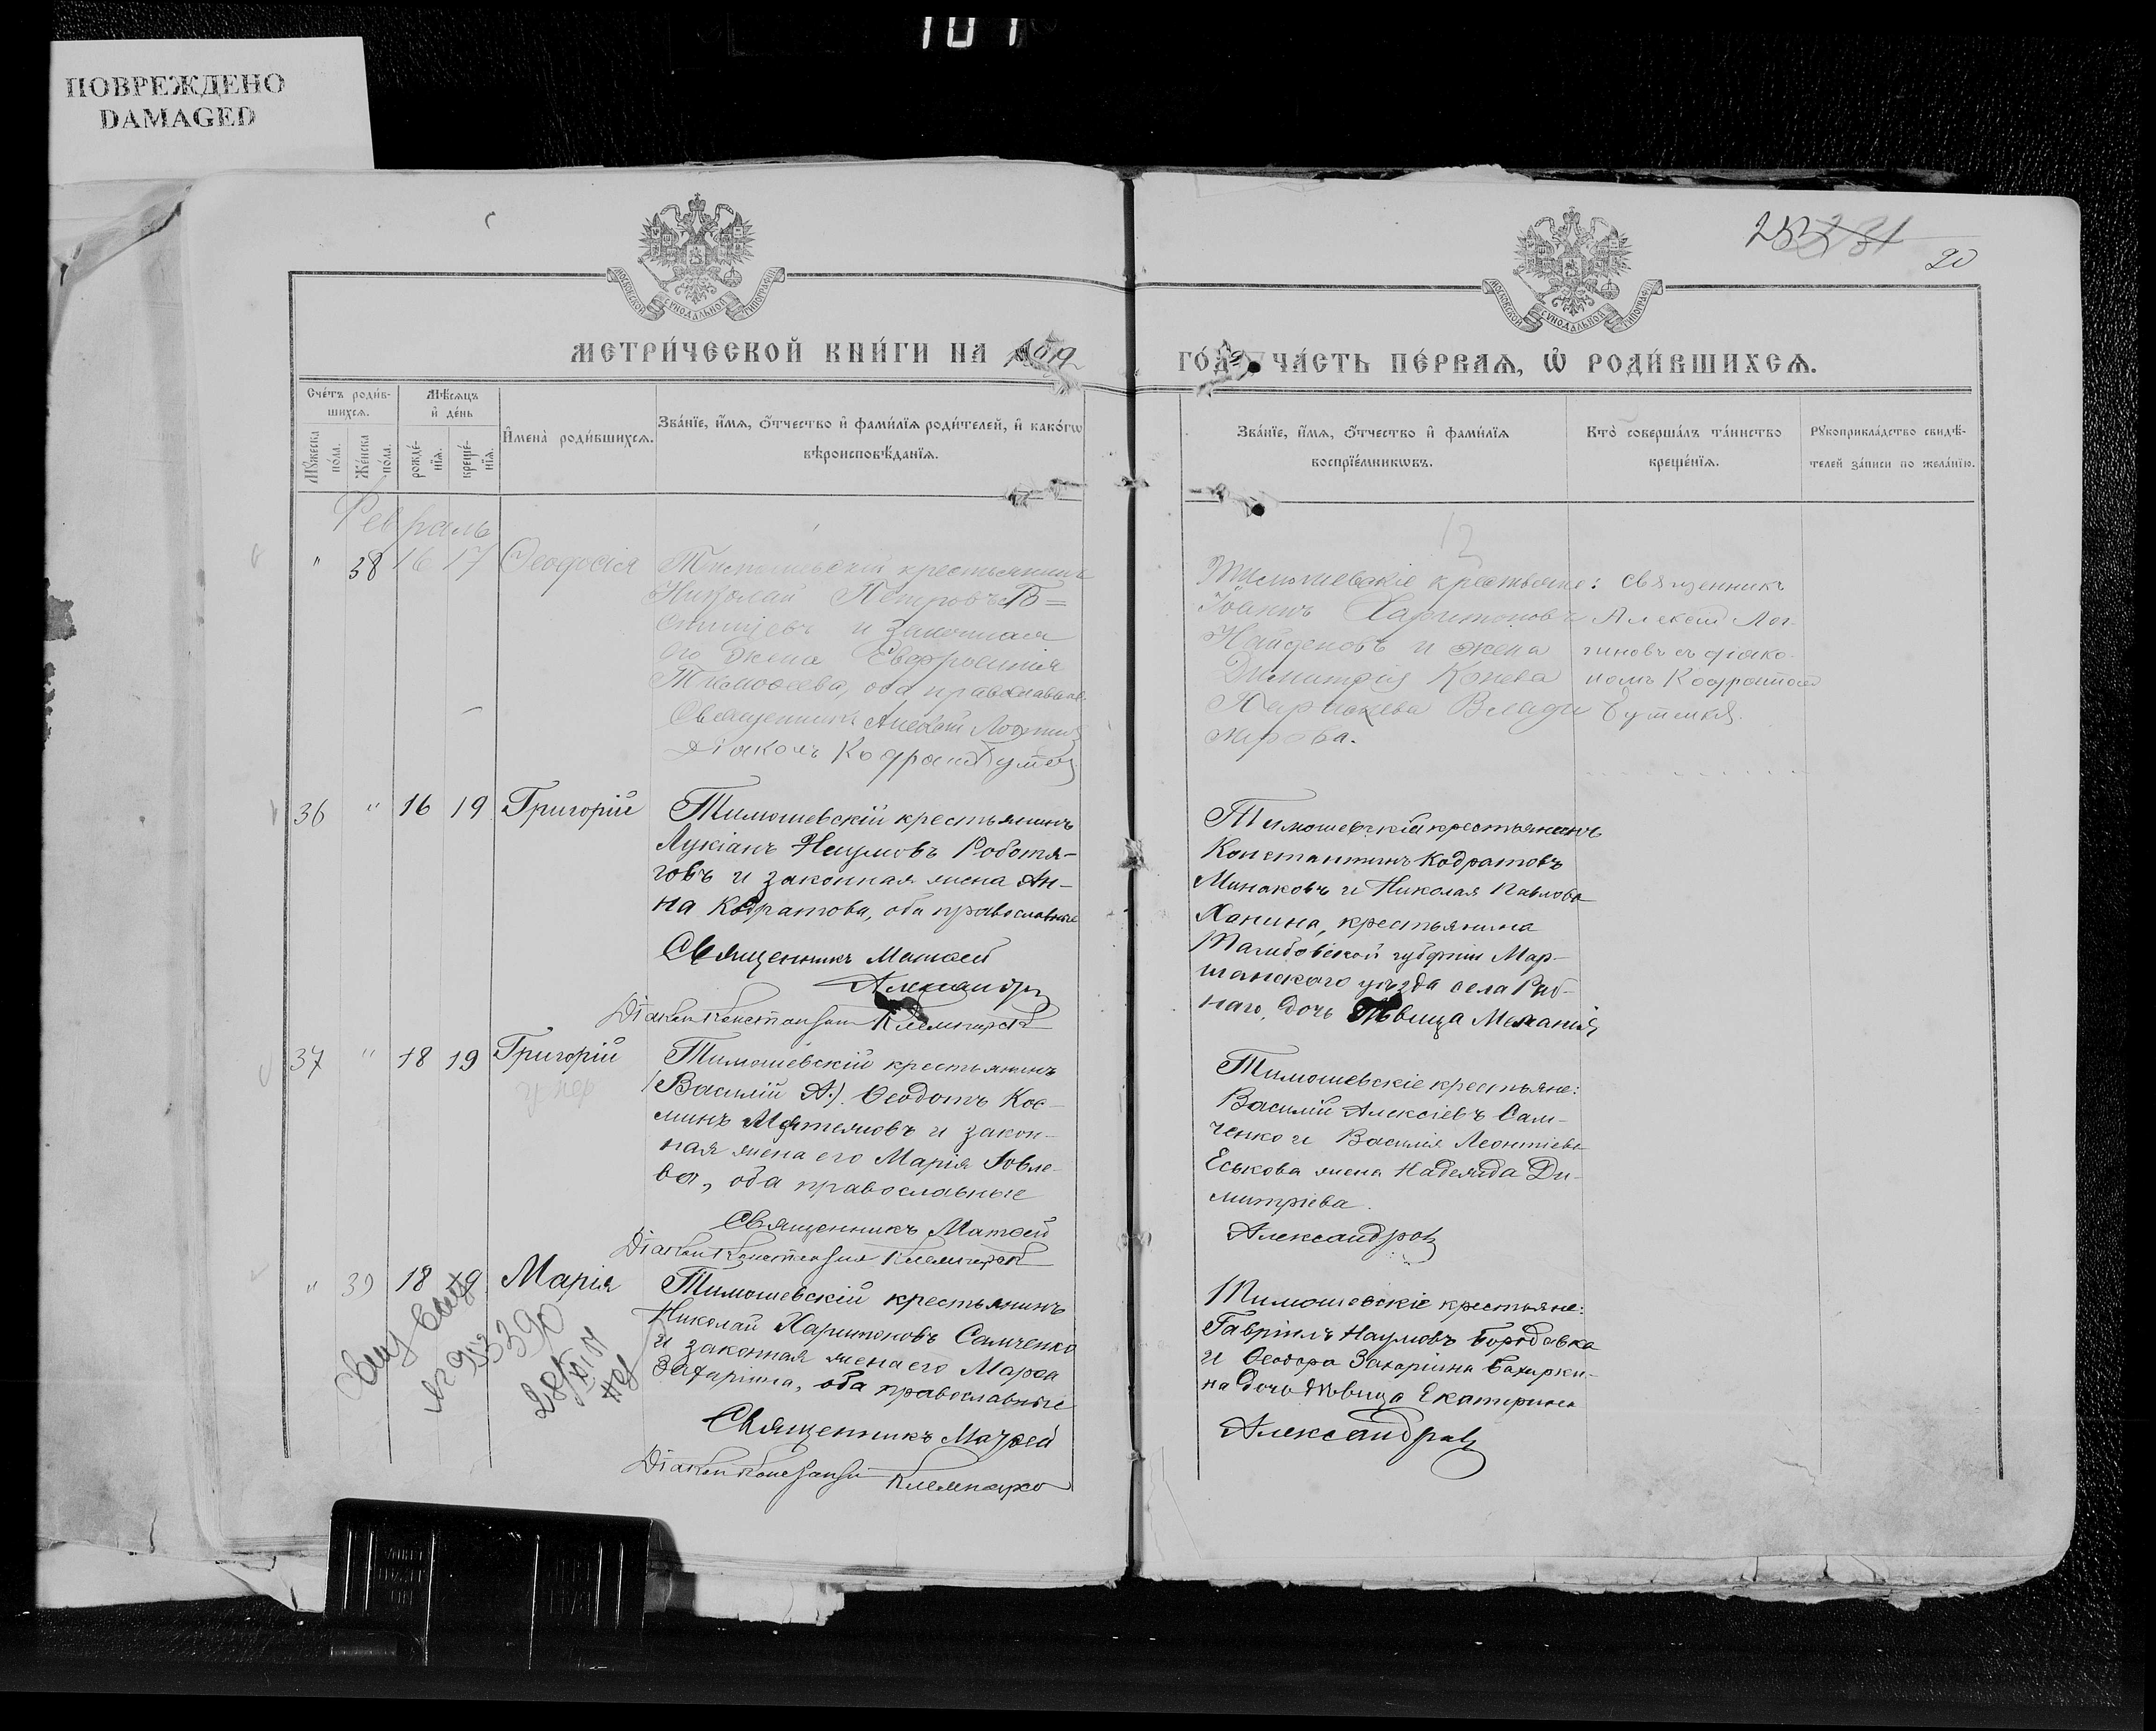 101
ПОВРЕЖДЕНО
DAMAGED
20
МОСКОВСКОЙ СѴНОДАЛЬНОЙ ТИПОГРАФІИ
МОСКОВСКОЙ СѴНОДАЛЬНОЙ ТИПОГРАФІИ
МЕТРИ́ЧЕСКОЙ КНИ́ГИ НА
ГО́ДЪ ЧА́СТЬ ПЕ́РВАѦ, Ѡ҆ РОДИ́ВШИХСѦ.
Сче́тъ роди́в-
шихсѧ.
Мꙋ́жеска по́ла.
Же́нска по́ла.
Мѣ́сѧцъ
и҆ де́нь
рожде́-нїѧ.
креще́-нїѧ.
И҆мена̀ роди́вшихсѧ.
Зва́нїе, и҆́мѧ, о҆́тчество и҆ фами́лїѧ роди́телей, и҆ како́гѡ
вѣроисповѣ́данїѧ.
Зва́нїе, и҆́мѧ, о҆́тчество и҆ фами́лїѧ
воспрїе́мникѡвъ.
Кто̀ соверша́лъ та́инство
креще́нїѧ.
Рꙋкоприкла́дство свидѣ́-
телей за́писи по жела́нїю.
Февраль
" 38 16 17 Ѳеодосія
Тимошевскій крестьянинъ
Николай Петровъ
и законная
его жена Евфросинія
Тимоѳеева, оба православные
Священникъ Алексѣй
Діаконъ Кодратъ
Тимошевскіе крестьяне:
Іоаннъ Харитоновъ
Найденовъ и жена
Димитрія Конева
Влади
мірова.
священникъ
Алексій Лог-
гиновъ съ діако-
номъ Кодратомъ
36 " 16 19 Григорій
Тимошевскій крестьянинъ
Лукіанъ Наумовъ Роботя-
говъ и законная жена Ан-
на Кодратова, оба православные
Священникъ Матѳей
Александровъ
Діаконъ Константинъ
Тимошевскій крестьянинъ
Константинъ Кодратовъ
Минаковъ и Николая Павлова
Ханина, крестьянина
Тамбовской губерніи Мор-
шанскаго уѣзда села
дочь дѣвица Меланія
37 " 18 19 Григорій
Тимошевскій крестьянинъ
(Василій А.). Ѳеодотъ Кос-
минъ и закон-
ная жена его Марія Іовле-
ва, оба православные
Священникъ Матѳей
Діаконъ Константинъ
Тимошевскіе крестьяне:
Василій Алексіевъ Сам-
ченко и Василія Леонтіева
Еськова жена Надежда Ди-
митріева.
Александровъ
" 39 18 19 Марія
Тимошевскій крестьянинъ
Николай Харитоновъ Самченко
и законная жена его Марѳа
Захаріина, оба православные
Священникъ Матѳей
Діаконъ
Тимошевскіе крестьяне:
Гавріилъ Наумовъ Бородавка
и Ѳеодора Захаріина
на дочь дѣвица Екатерина
Александровъ